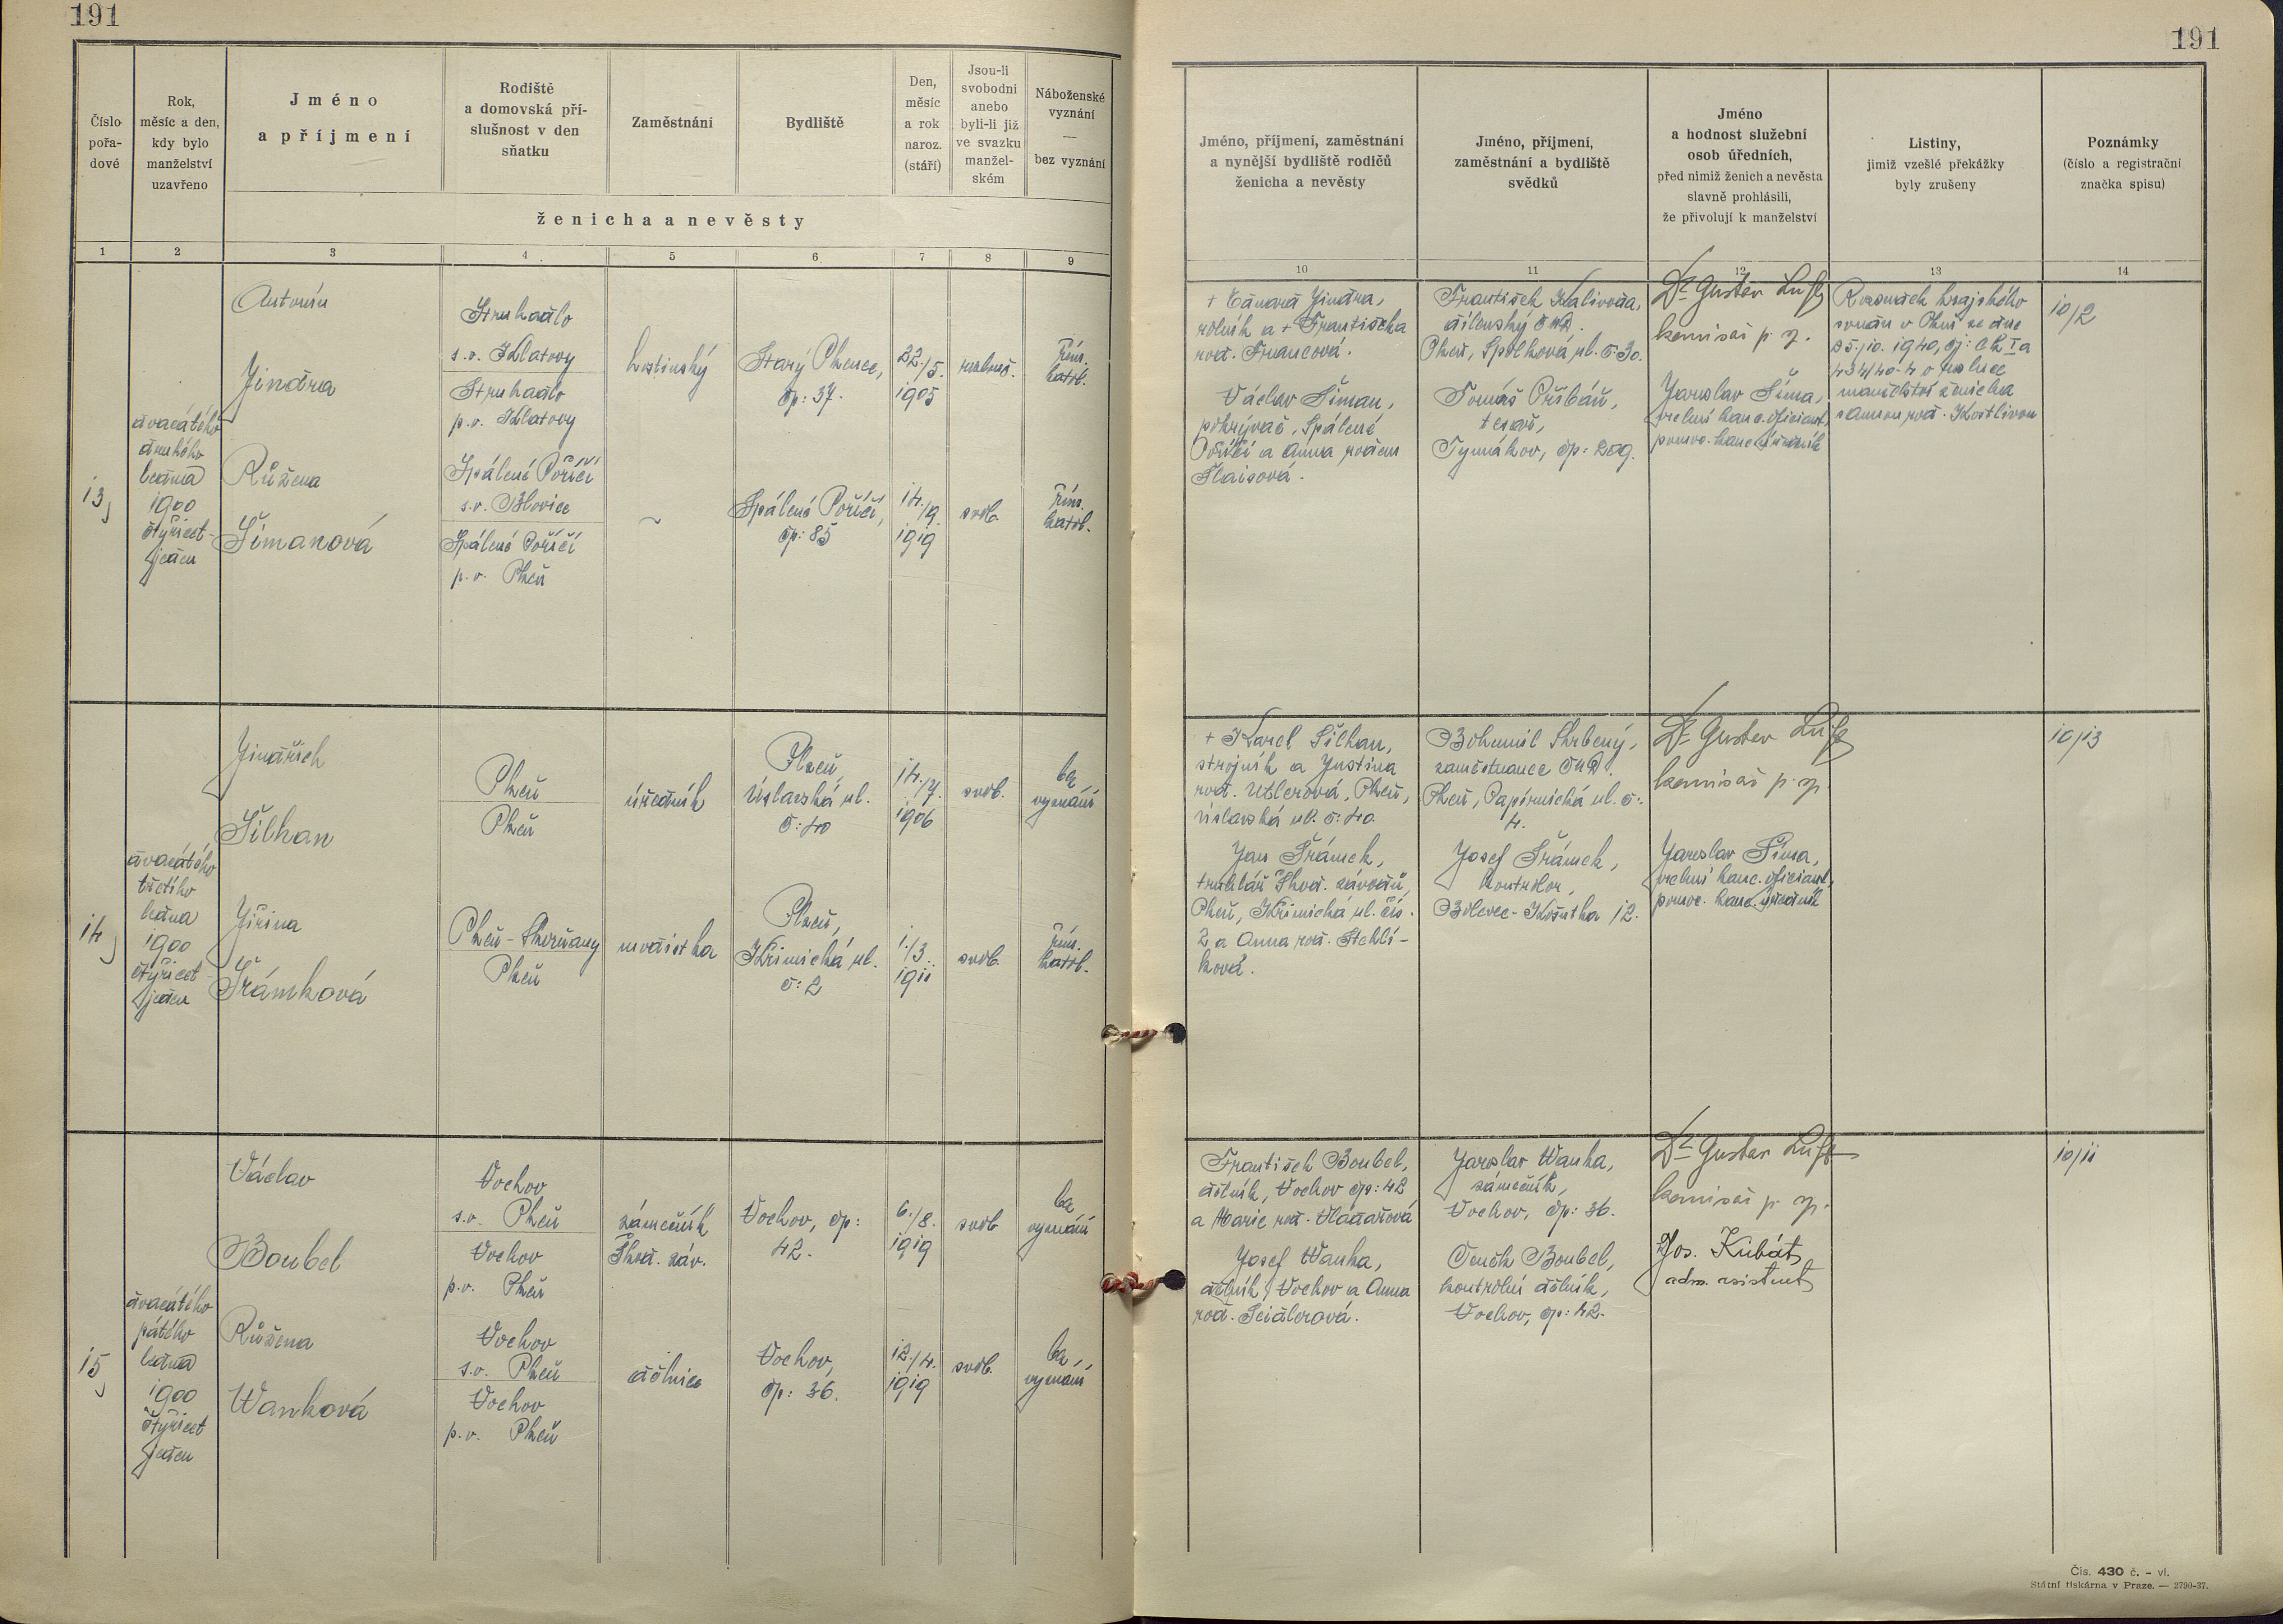 191
191
Číslo
pořa-
dové
Rok,
měsíc a den,
kdy bylo
manželství
uzavřeno
Jméno
a příjmení
Rodiště
a domovská pří-
slušnost v den
sňatku
Zaměstnání
Bydliště
Den,
měsíc
a rok
naroz.
(stáří)
Jsou-li
svobodni
anebo
byli-li již
ve svazku
manžel-
ském
Náboženské
vyznání
—
bez vyznání
ženicha a nevěsty
1 2 3 4 5 6 7 8 9
Jméno, příjmení, zaměstnání
a nynější bydliště rodičů
ženicha a nevěsty
Jméno, příjmení,
zaměstnání a bydliště
svědků
Jméno
a hodnost služební
osob úředních,
před nimiž ženich a nevěsta
slavně prohlásili,
že přivolují k manželství
Listiny,
jimiž vzešlé překážky
byly zrušeny
Poznámky
(číslo a registrační
značka spisu)
10 11 12 13 14
13)
dvacátého
druhého
ledna
1900
čtyřicet-
jeden
Antonín
Jindra
Struhadlo
s.o. Klatovy
Struhadlo
p.o. Klatovy
hostinský
Starý Plzenec,
čp: 37.
22./5.
1905
rozluč.
řím.
katol.
Růžena
Šimanová
Spálené Poříčí
s.o. Blovice
Spálené Poříčí
p.o. Plzeň
~
Spálené Poříčí,
čp: 85
14./9.
1919
svob.
řím.
katol.
+ Eduard Jindra,
rolník a + Františka
roz. Francová.
Václav Šiman,
pokrývač, Spálené
Poříčí a Anna rozem
Flaisová.
František Kalivoda,
dílenský ČMD.
Plzeň, Spolková ul. č: 30.
Tomáš Příbáň,
tesař,
Tymákov, čp: 209.
Dr Gustav Luft
komisař p. sp.
Jaroslav Šíma,
vrchní kanc. oficiant,
pomoc. kanc. úředník
Rozsudek krajského
soudu v Plzni ze dne
25./10. 1940, čj: Ck I a
434/40-4 o rozluce
manželství ženicha
s Annou roz. Kostlivou
10/2
14)
dvacátého
třetího
ledna
1900
čtyřicet-
jeden
Jindřich
Šilhan
Plzeň
Plzeň
úředník
Plzeň,
Úslavská ul.
č: 40
14./7.
1906
svob.
bez
vyznání
Jiřina
Šrámková
Plzeň-Skvrňany
Plzeň
modistka
Plzeň,
Křimická ul.
č: 2
1./3.
1911
svob.
řím.
katol.
+ Karel Šilhan,
strojník a Justina
roz. Utzlerová, Plzeň,
Úslavská ul. č: 40.
Jan Šrámek,
truhlář Škod. závodů,
Plzeň, Křimická ul. čís.
2 a Anna roz. Stehlí-
ková.
Bohumil Skrbený,
zaměstnanec ČMD.
Plzeň, Papírnická ul. č:
4.
Josef Šrámek,
kontrolor,
Bolevec-Košutka 12.
Dr Gustav Luft
komisař p. sp.
Jaroslav Šíma,
vrchní kanc. oficiant,
pomoc. kanc. úředník
10/13
15)
dvacátého
pátého
ledna
1900
čtyřicet
jeden
Václav
Boubel
Vochov
s.o. Plzeň
Vochov
p.o. Plzeň
zámečník
Škod. záv.
Vochov, čp:
42.
6./8.
1919
svob
bez
vyznání
Růžena
Wanková
Vochov
s.o. Plzeň
Vochov
p.o. Plzeň
dělnice
Vochov,
čp: 36.
12./4.
1919
svob.
bez
vyznání
František Boubel,
dělník, Vochov čp: 42
a Marie roz. Vladařová
Josef Wanka,
dělník, Vochov a Anna
roz. Seidlerová.
Jaroslav Wanka,
zámečník,
Vochov, čp: 36.
Čeněk Boubel,
kontrolní dělník,
Vochov, čp: 42.
Dr Gustav Luft
komisař p. sp.
Jos. Kubát,
adm. asistent
10/11
Čís. 430 č. – vl.
Státní tiskárna v Praze. — 2790-37.